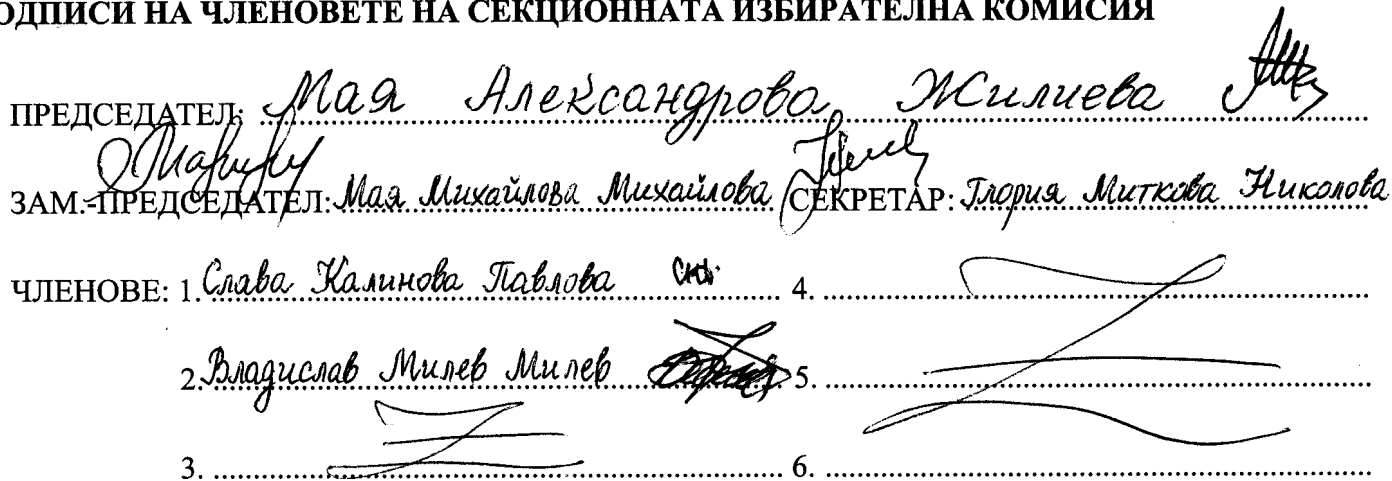 ОДПИСИ НА ЧЛЕНОВЕТЕ НА СЕКЦИОННАТА ИЗБИРАТЕЛНА КОМИСИЯ
ПРЕДСЕДАТЕЛ: Мая Александрова Жилиева
ЗАМ.-ПРЕДСЕДАТЕЛ: Мая Михайлова Михайлова СЕКРЕТАР: Глория Миткова Николова
ЧЛЕНОВЕ: 1. Слава Калинова Павлова 4.
2. Владислав Милев Милев 5.
3. 6.